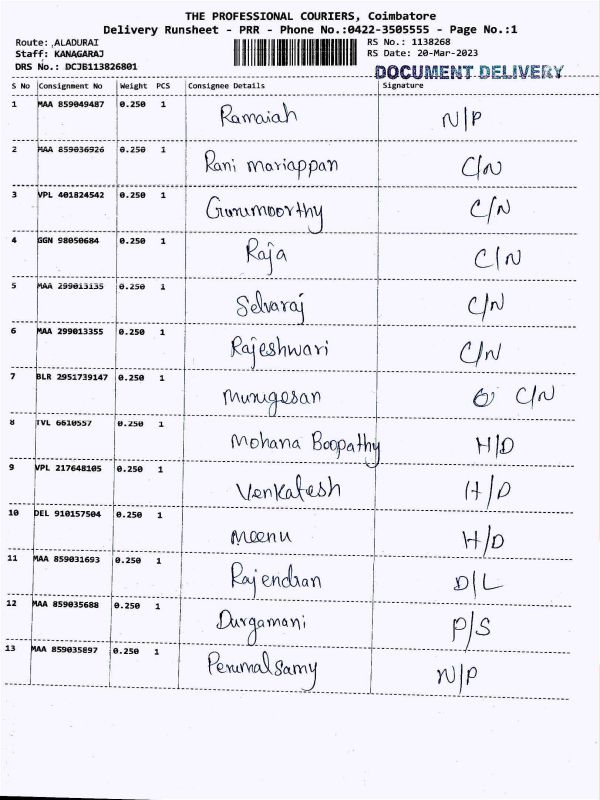 THE PROFESSIONAL COURIERS, Coimbatore
Delivery Runsheet - PRR - Phone No.:0422-3505555 - Page No.:1
Route: ,ALADURAI RS No.: 1138268
Staff: KANAGARAJ RS Date: 20-Mar-2023
DRS No.: DCJB113826801 DOCUMENT DELIVERY
S No Consignment No Weight PCS Consignee Details Signature
1 MAA 859049487 0.250 1 Ramaiah N/P
2 MAA 859036926 0.250 1 Rani mariappan C/N
3 VPL 401824542 0.250 1 Gurumoorthy C/N
4 GGN 98050684 0.250 1 Raja C/N
5 MAA 299013135 0.250 1 Selvaraj C/N
6 MAA 299013355 0.250 1 Rajeshwari C/N
7 BLR 2951739147 0.250 1 murugesan C/N
8 TVL 6610557 0.250 1 Mohana Boopathy H/D
9 VPL 217648105 0.250 1 Venkatesh H/D
10 DEL 910157504 0.250 1 meenu H/D
11 MAA 859031693 0.250 1 Rajendran D/L
12 MAA 859035688 0.250 1 Durgamani P/S
13 MAA 859035897 0.250 1 Perumalsamy N/P